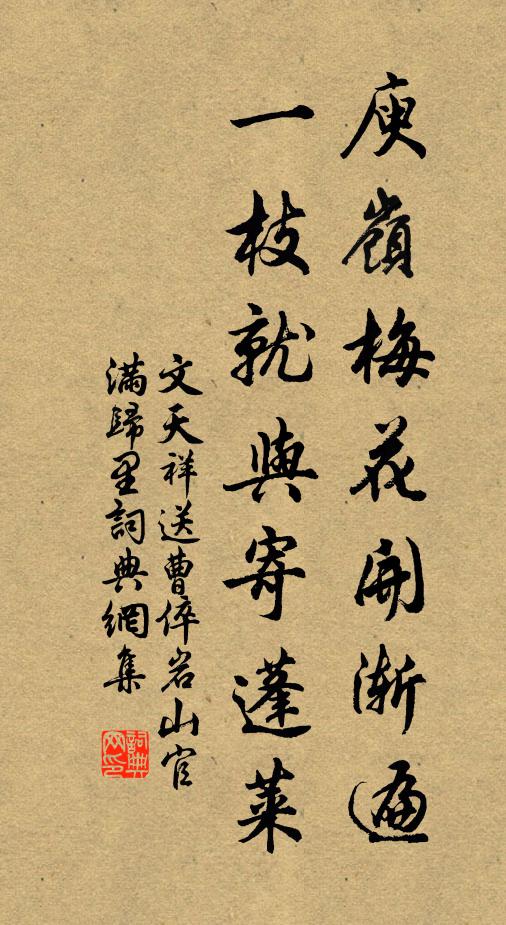 庾嶺梅花開漸遍
一枝就與寄蓬萊
文天祥送曹倅岩山官
滿歸里詞典網集
詞典
网印